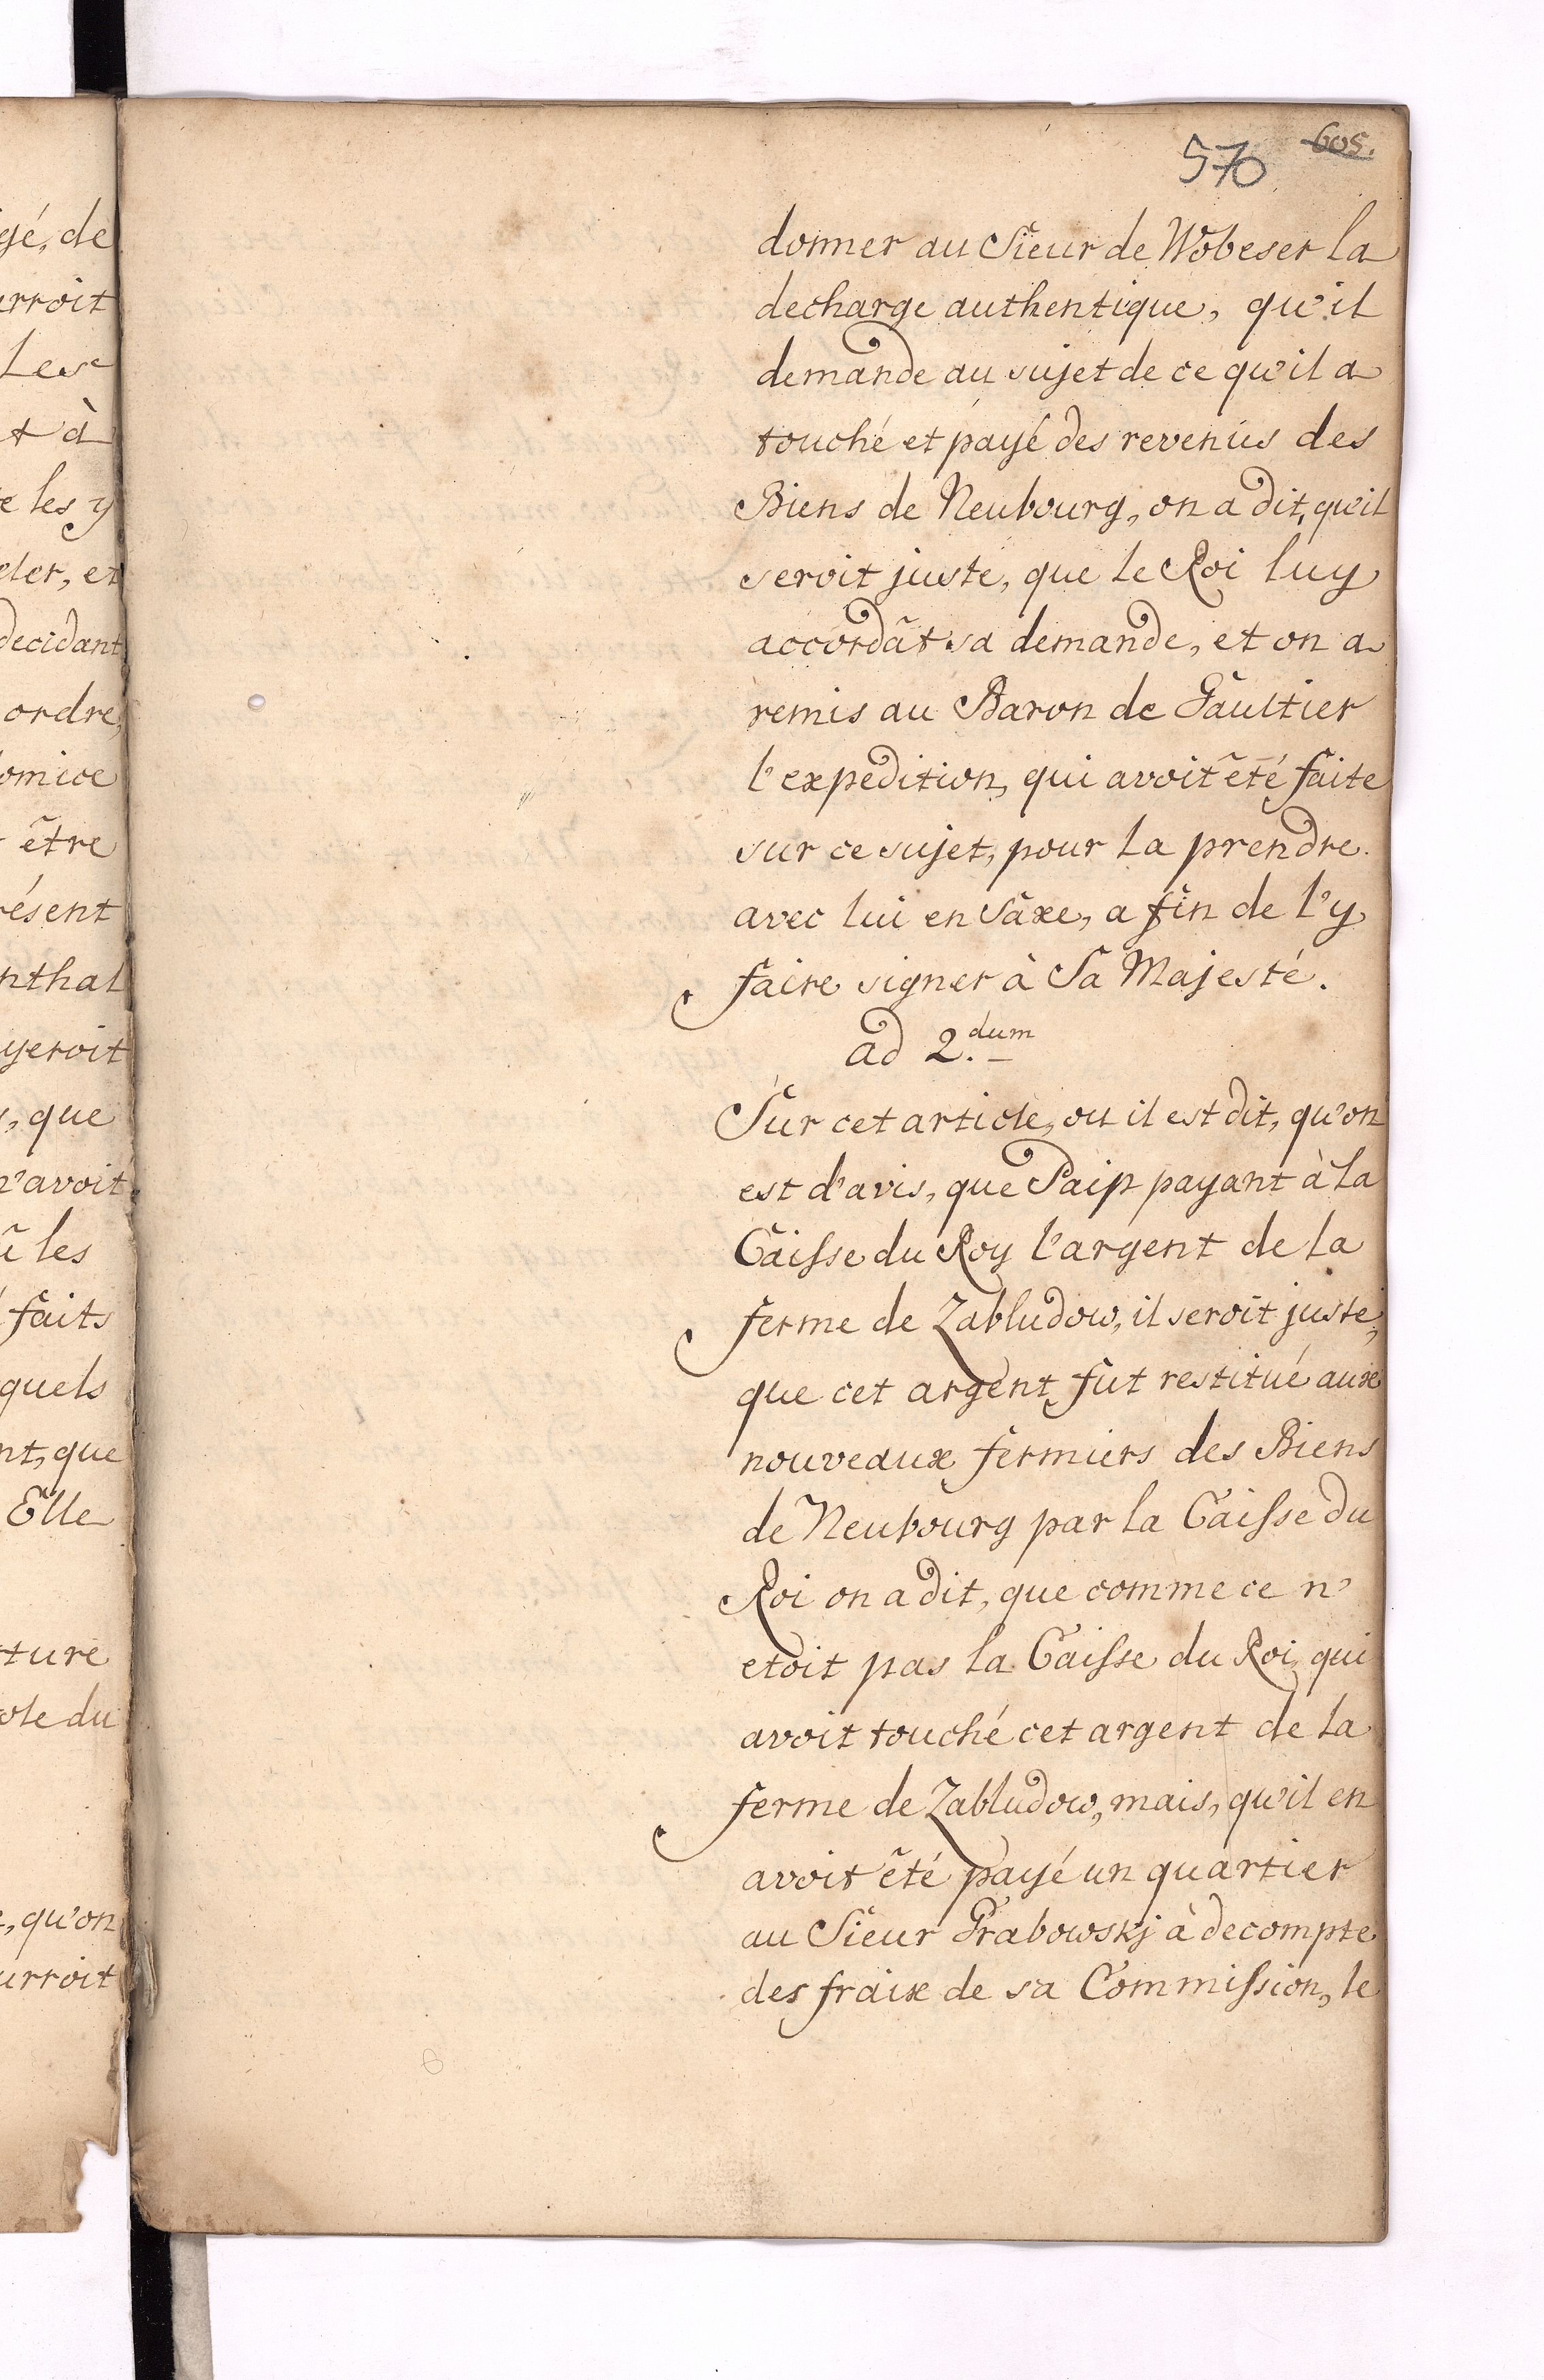 gé, de
urroit
Les
t à
e les y
eler, et
decidant
ordre,
omice
être
résent
nthal
yeroit
, que
n'avoit
û les
faits
quels
nt, que
Elle
ture
ole du
, qu'on
urroit
605.
570
donner au Sieur de Wobeser la
decharge authentique, qu'il
demande au sujet de ce qu'il a
touché et payé des revenus des
Biens de Neubourg, on a dit, qu'il
seroit juste, que le Roi luy
accordât sa demande, et on a
remis au Baron de Gaultier
l'expedition, qui avoit été faite
sur ce sujet, pour la prendre
avec lui en Saxe, a fin de l'y
faire signer à Sa Majesté.
ad 2.dum
Sur cet article, ou il est dit, qu'on
est d'avis, que Paip payant à la
Caisse du Roy l'argent de la
ferme de Zabludow, il seroit juste,
que cet argent fut restitué aux
nouveaux fermiers des Biens
de Neubourg par la Caisse du
Roi on a dit, que comme ce n'
etoit pas la Caisse du Roi, qui
avoit touché cet argent de la
ferme de Zabludow, mais, qu'il en
avoit été payé un quartier
au Sieur Grabowskj à decompte
des fraix de sa Commission, le